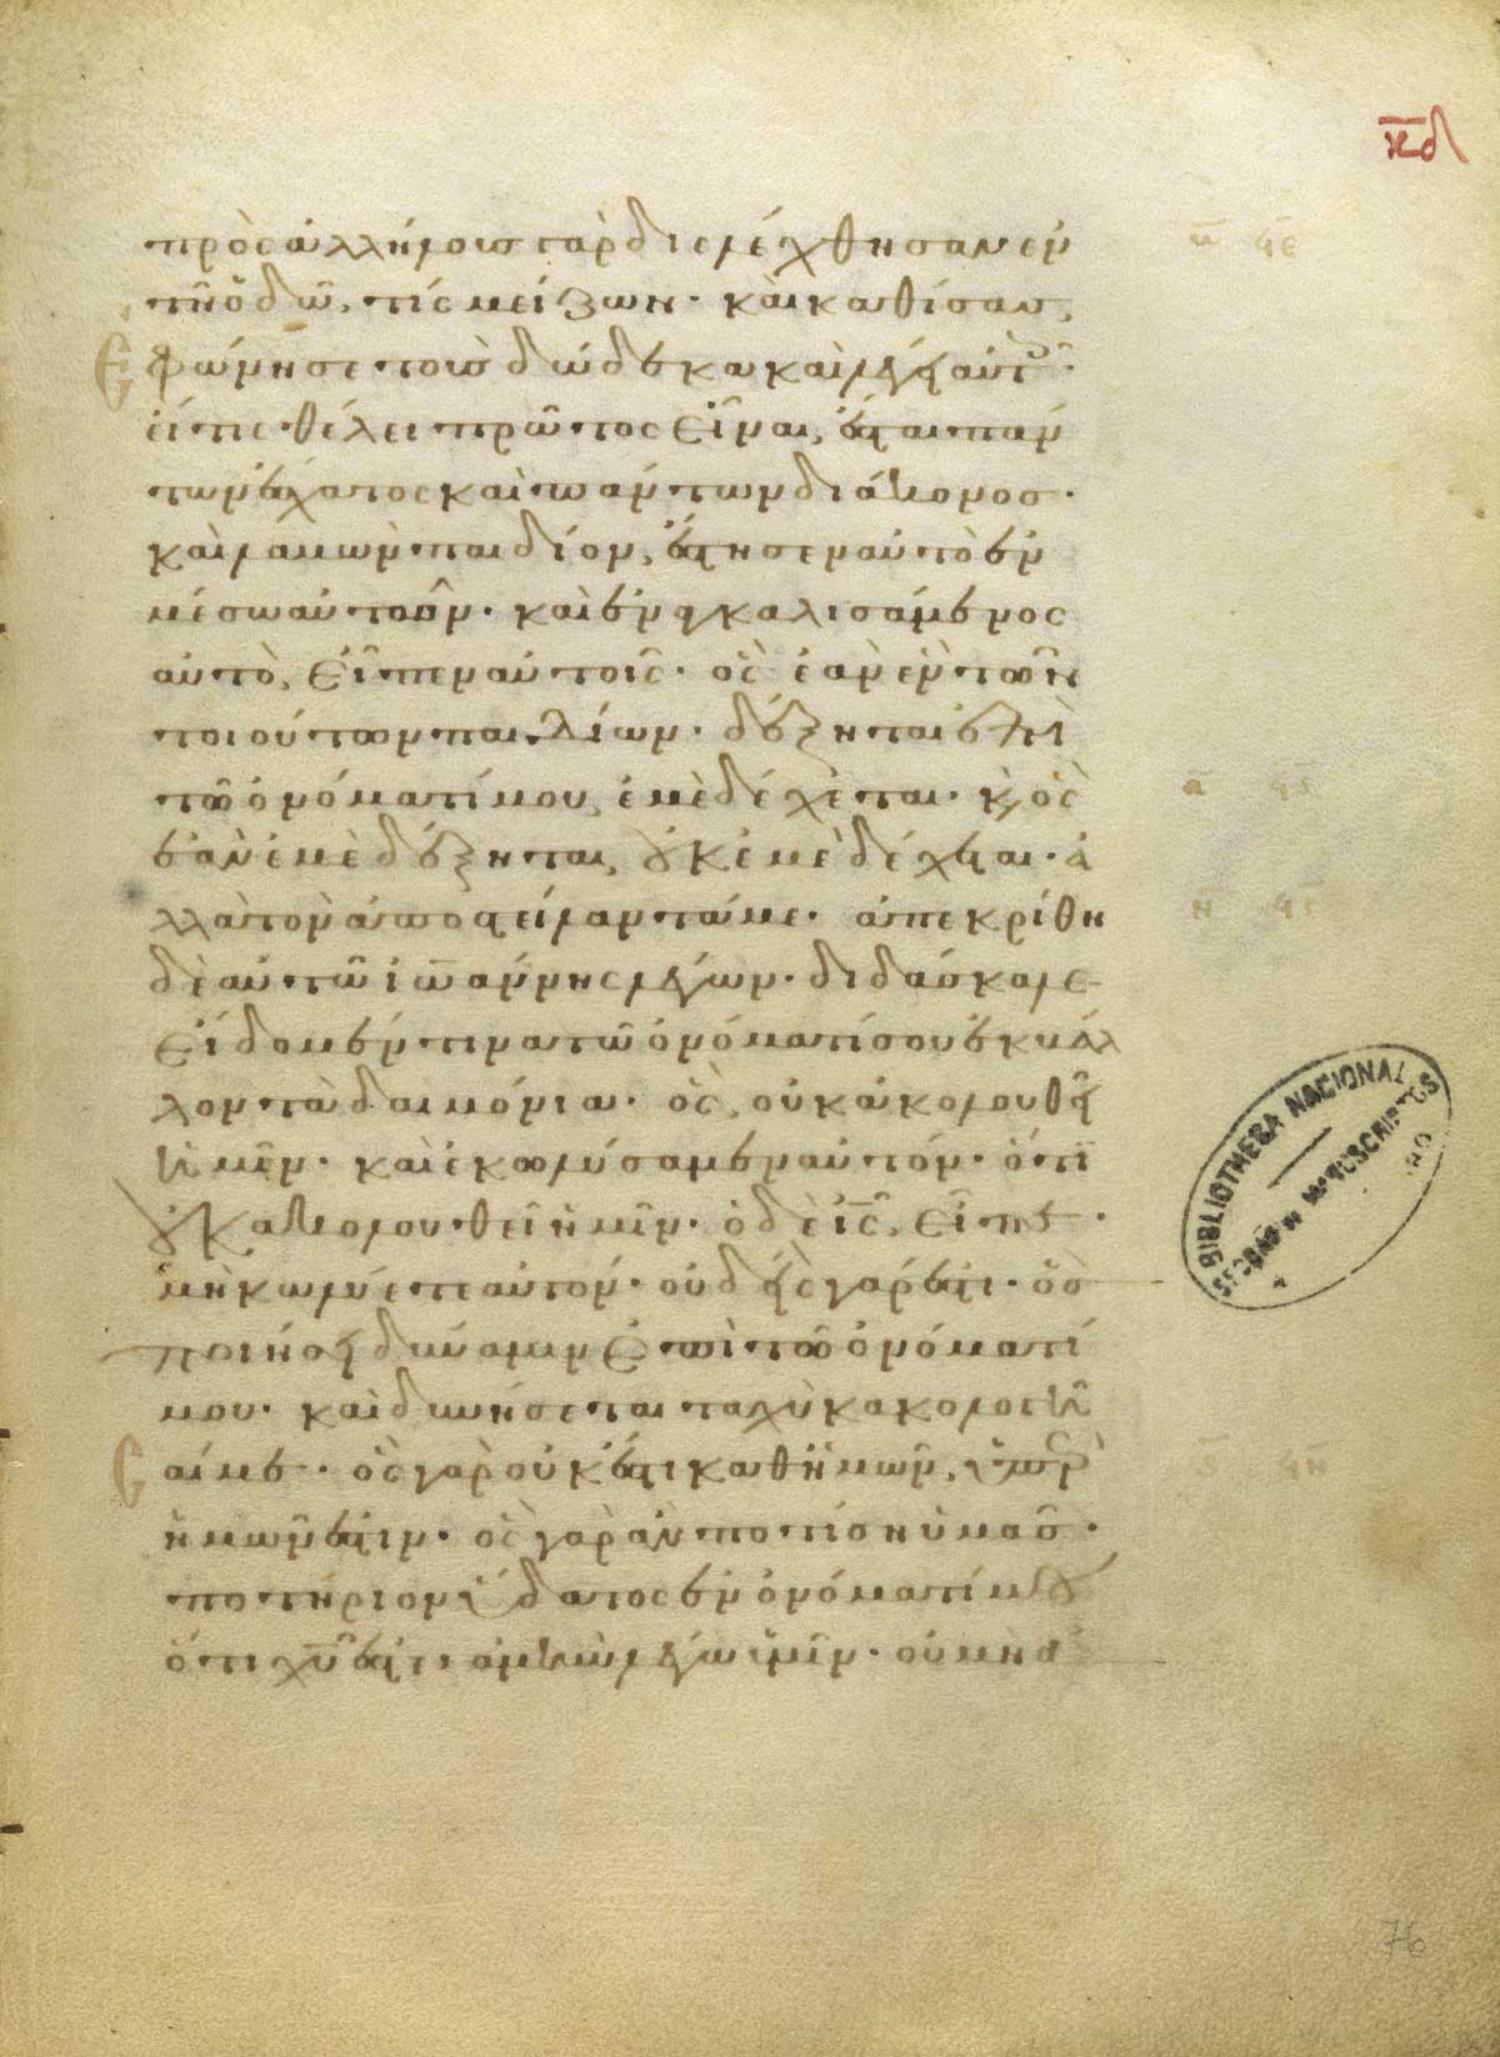 κδ
πρὸς ἀλλήλους γὰρ διελέχθησαν ἐν
τῆ ὁδῶ, τίς μείζων· καὶ καθίσας,
ἐφώνησε τοὺς δώδεκα καὶ λέγει αὐτοῖς·
εἴ τις θέλει πρῶτος εἶναι, ἔσται πάν
των ἔσχατος καὶ πάντων διάκονος·
καὶ λαβὼν παιδίον, ἔστησεν αὐτὸ ἐν
μέσω αὐτῶν· καὶ ἐναγκαλισάμενος
αὐτὸ, εἶπεν αὐτοῖς· ὃς ἐὰν ἓν τῶν
τοιούτων παιδίων· δέξηται ἐπὶ
τῶ ὀνόματί μου, ἐμὲ δέχεται· κ, ὃς
ἐὰν ἐμὲ δέξηται, οὐκ ἐμὲ δέχεται· ἀ
λλὰ τὸν ἀποστείλαντά με· ἀπεκρίθη
δὲ αὐτῶ ἰωάννης λέγων· διδάσκαλε
εἴδομέν τινα τῶ ὀνόματί σου ἐκβάλ
λοντα δαιμόνια· ὃς, οὐκ ἀκολουθεῖ
ἡμῖν· καὶ ἐκωλύσαμεν αὐτόν· ὅτι
οὐκ ἀκολουθεῖ ἡμῖν· ὁ δὲ ις, εἶπε·
μὴ κωλύετε αὐτόν· οὐδεὶς γάρ ἐστι· ὃς
ποιήσει δύναμιν ἐπὶ τῶ ὀνόματί
μου· καὶ δυνήσεται ταχὺ κακολογῆ
σαί με· ὃς γὰρ οὐκ ἔστι καθ ἡμῶν, ὑπὲρ
ἡμῶν ἐστιν· ὃς γὰρ ἂν ποτίση ὑμᾶς·
ποτήριον ὕδατος ἐν ὀνόματί μου
ὅτι χυ ἐστὲ ἀμὴν λέγω ὑμῖν· οὐ μὴ ἀ
η ϟε
α ϟς
η ϟζ
ϟη
BIBLIOTHECA NACIONAL
76